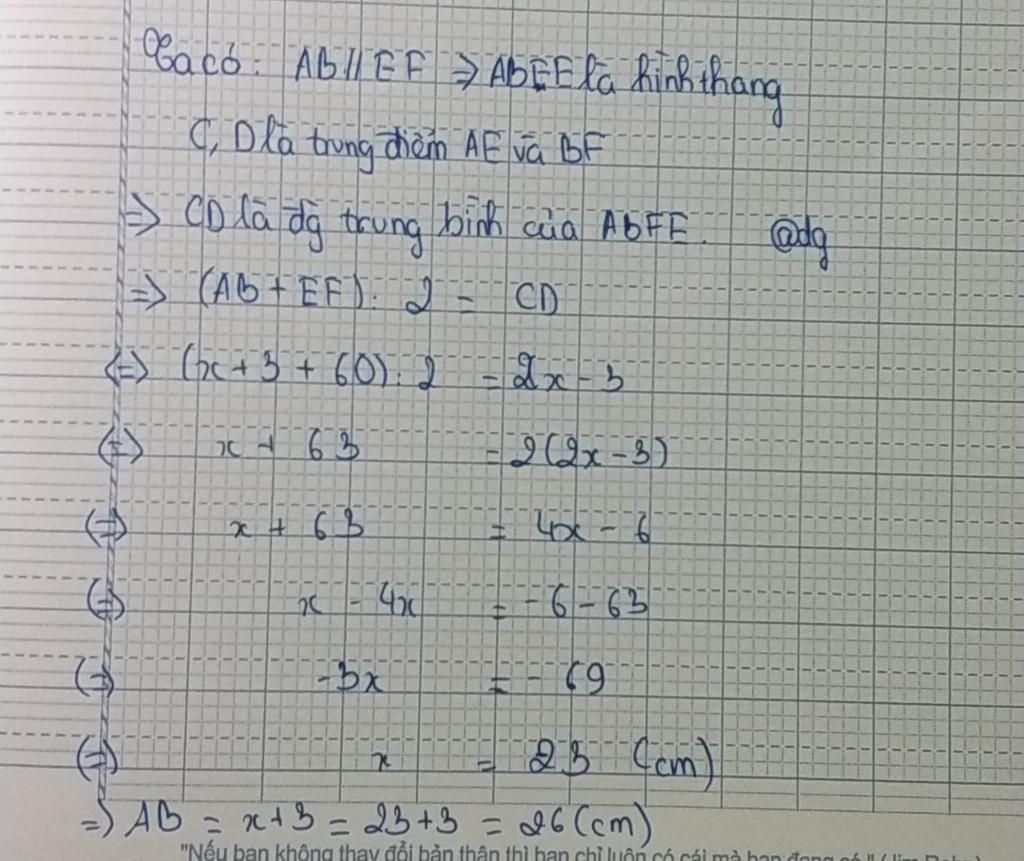 Ta có: AB // EF => ABFE là hình thang
C, D là trung điểm AE và BF
=> CD là đg trung bình của ABFE. @dg
=> (AB + EF) : 2 = CD
<=> (x + 3 + 60) : 2 = 2x - 3
<=> x + 63 = 2(2x - 3)
<=> x + 63 = 4x - 6
<=> x - 4x = -6 - 63
<=> -3x = -69
<=> x = 23 (cm)
=> AB = x + 3 = 23 + 3 = 26 (cm)
"Nếu bạn không thay đổi bản thân thì bạn chỉ luôn có cái mà bạn đang có."